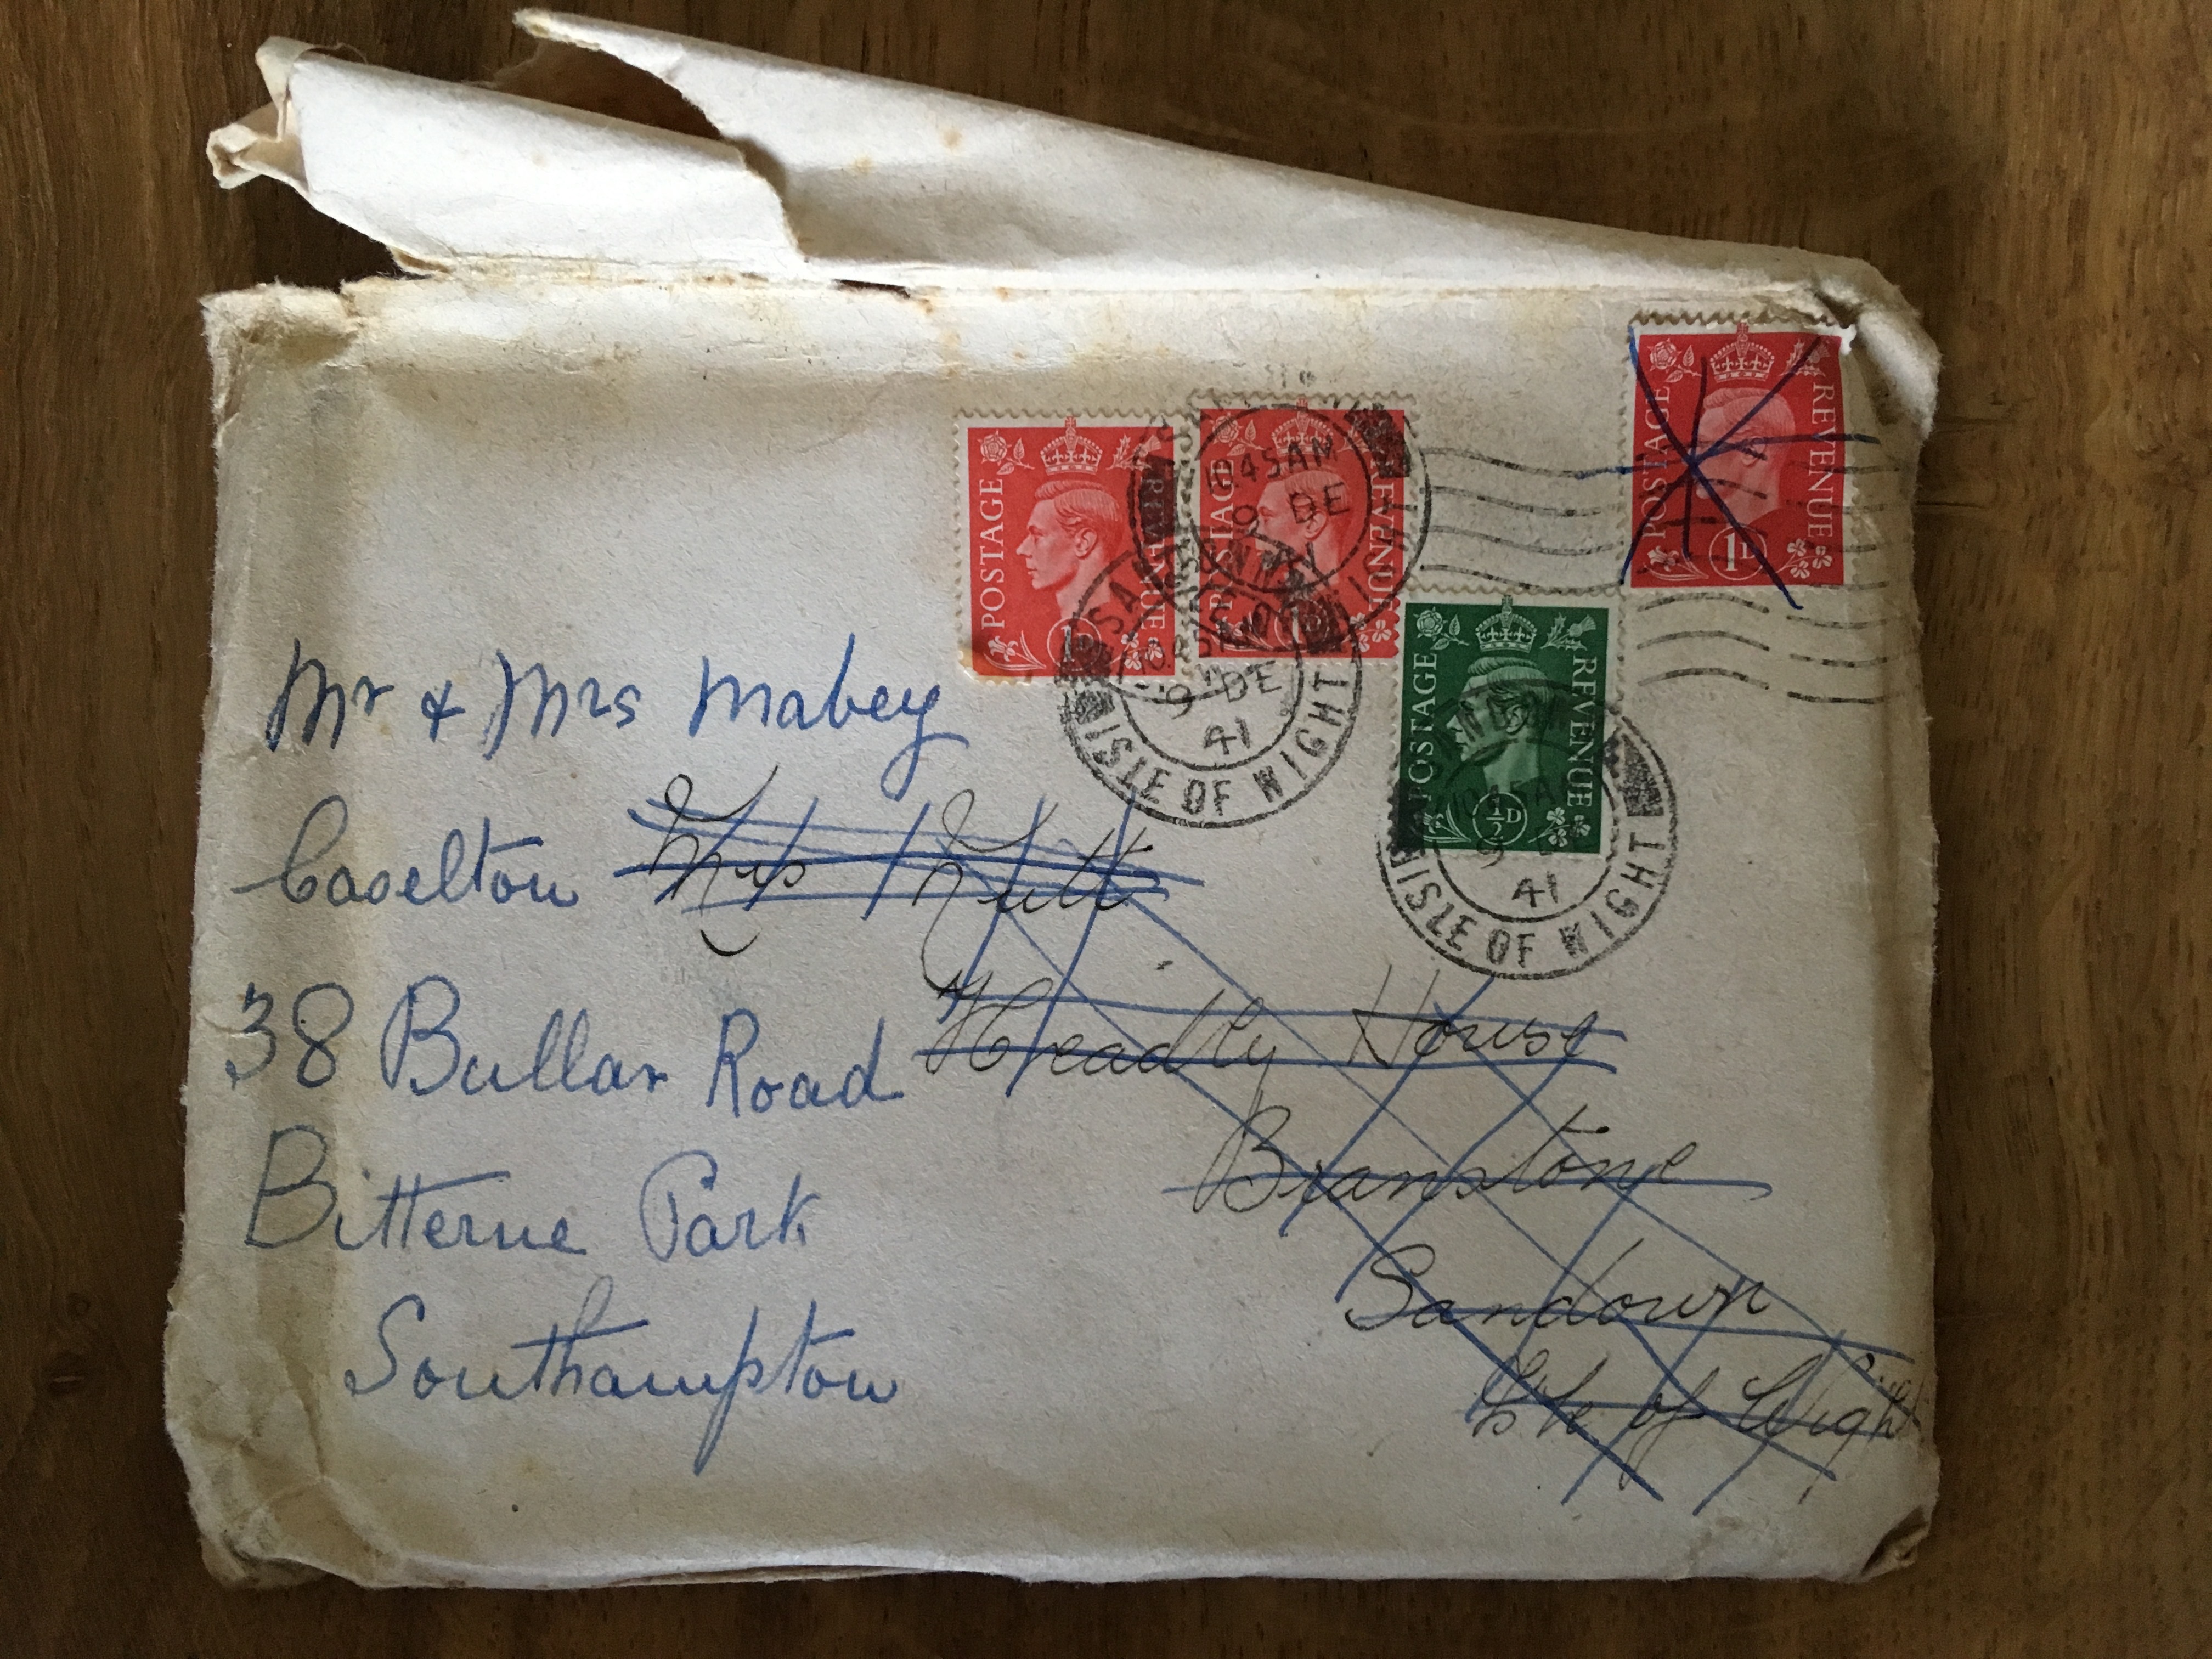 POSTAGE REVENUE 1D
POSTAGE REVENUE 1D
POSTAGE REVENUE 1D
POSTAGE REVENUE ½D
10.45AM
9 DE
41
SANDOWN
9 DE
41
ISLE OF WIGHT
10.45A
9
41
ISLE OF WIGHT
Mr & Mrs Mabey
Caselton
38 Bullar Road
Bitterne Park
Southampton
Mrs
Headly House
Branstone
Sandown
Isle of Wight